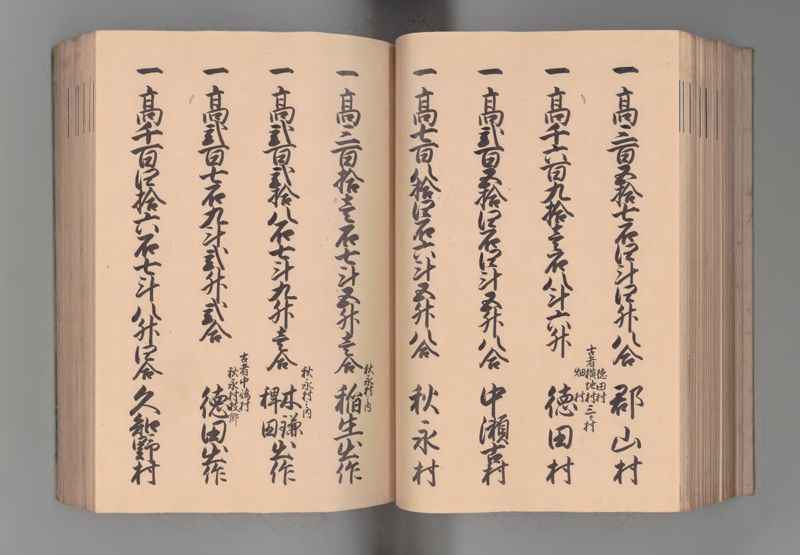 一 高三百五拾七石四斗四升八合 郡山村
一 高千六百九拾壱石八斗六升 古者徳田村横地村畑村三ケ村 徳田村
一 高弐百五拾四石四斗五升八合 中瀬古村
一 高七百八拾四石六斗五升八合 秋永村
一 高三百拾壱石七斗五升壱合 秋永村之内 稲生出作
一 高弐百弐拾八石七斗九升壱合 秋永村之内 林鎌 稗田出作
一 高弐百七石九斗弐升弐合 古者中嶋村 秋永村枝郷 徳田出作
一 高千百四拾六石七斗八升四合 久知野村